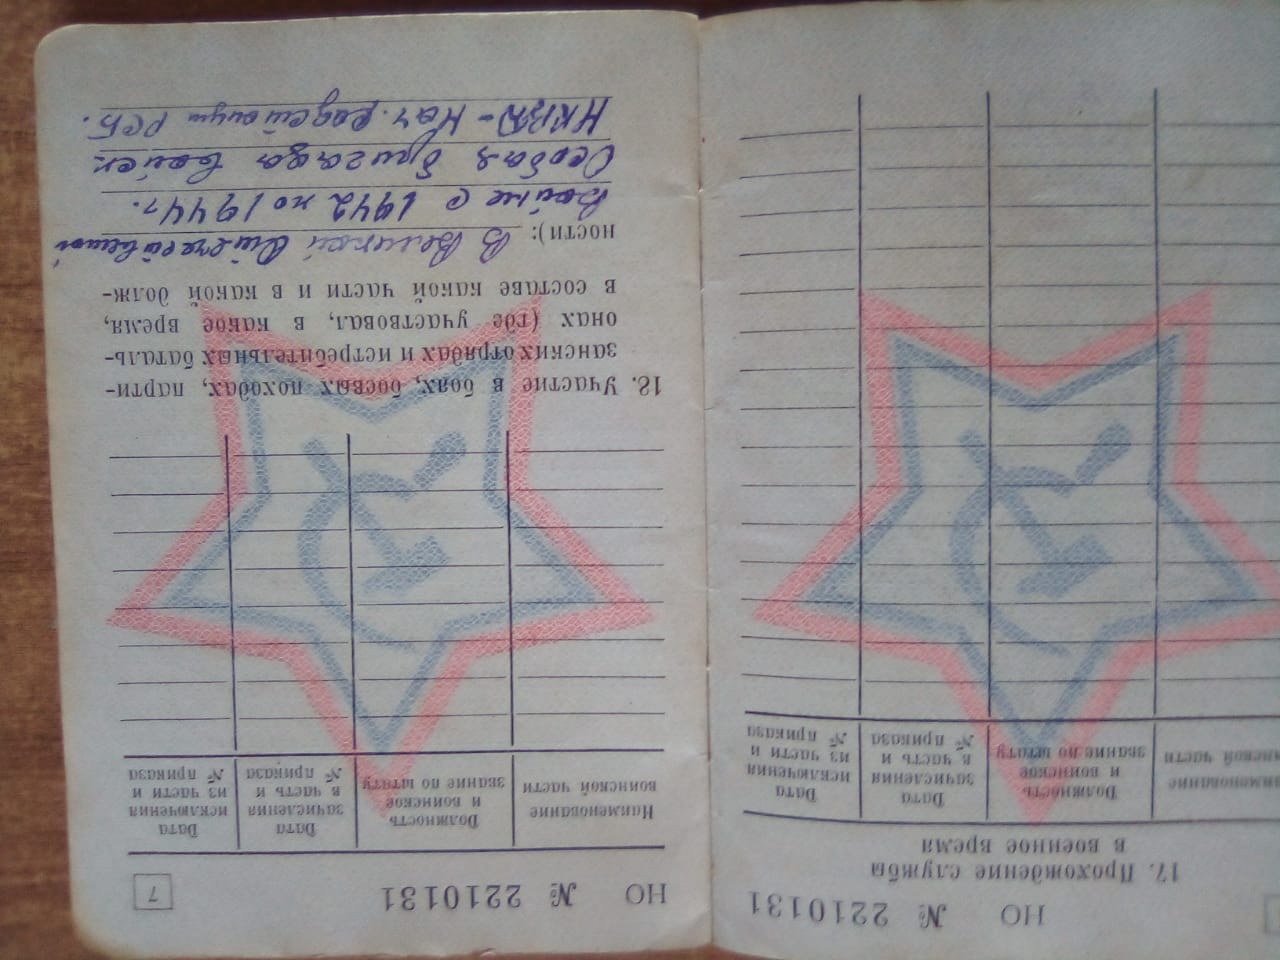 НО № 2210131
17. Прохождение службы
в военное время
Наименование
воинской части
Должность
и воинское
звание по штату
Дата
зачисления
в часть и
№ приказа
Дата
исключения
из части и
№ приказа
НО № 2210131
7
Наименование
воинской части
Должность
и воинское
звание по штату
Дата
зачисления
в часть и
№ приказа
Дата
исключения
из части и
№ приказа
18. Участие в боях, боевых походах, парти-
занских отрядах и истребительных баталь-
онах (где участвовал, в какое время,
в составе какой части и в какой долж-
ности): В Великой Отечественной
Войне с 1942 по 1944 г.
Особая бригада войск
НКВД - Нач. радиостанции РСБ.